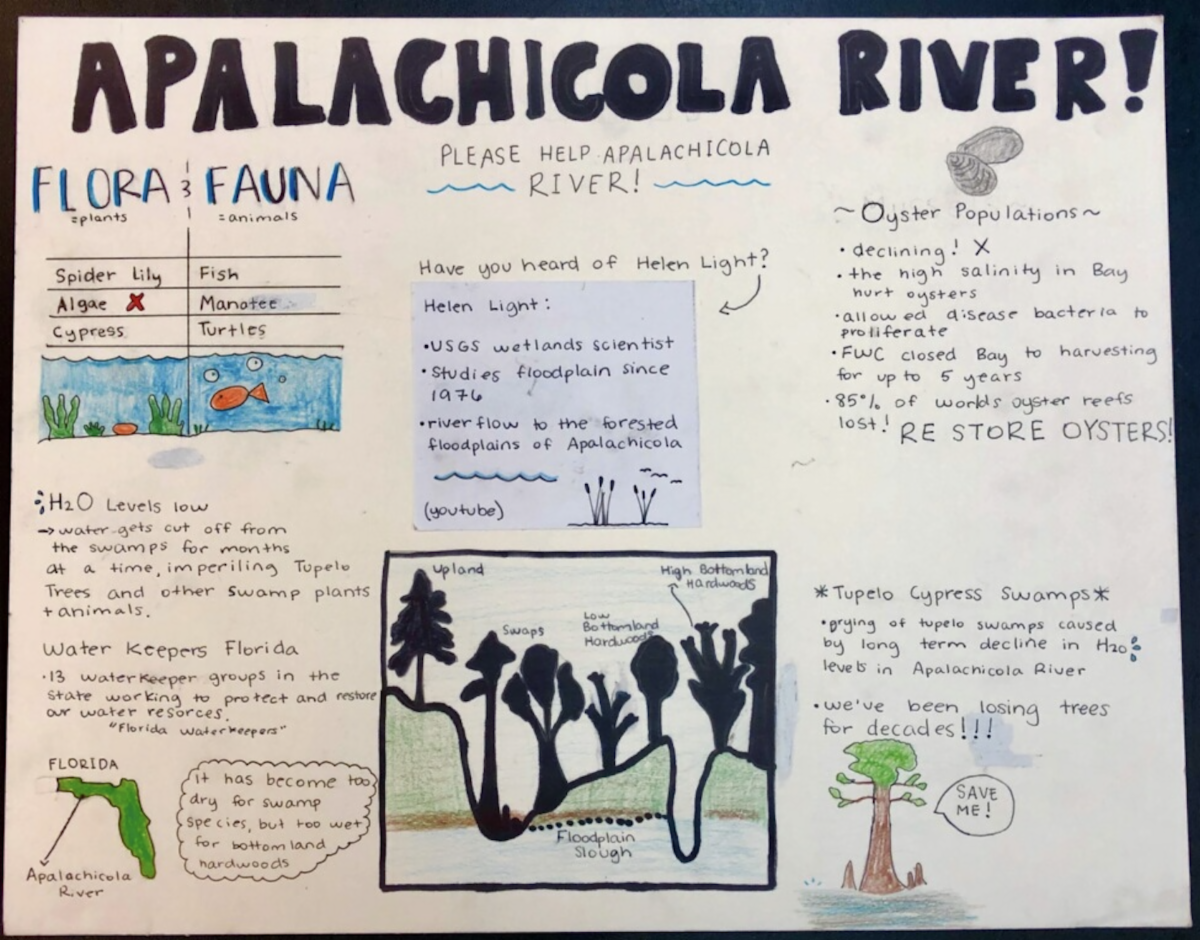 APALACHICOLA RIVER!
PLEASE HELP APALACHICOLA
RIVER!
FLORA & FAUNA
=plants =animals
Spider Lily Fish
Algae X Manatee
Cypress Turtles
H2O Levels low
→ water gets cut off from
the swamps for months
at a time, imperiling Tupelo
Trees and other swamp plants
+ animals.
Water Keepers Florida
• 13 waterkeeper groups in the
state working to protect and restore
our water resorces.
"Florida waterkeepers"
FLORIDA
Apalachicola
River
it has become too
dry for swamp
species, but too wet
for bottomland
hardwoods
Have you heard of Helen Light?
Helen Light:
• USGS wetlands scientist
• Studies floodplain since
1976
• river flow to the forested
floodplains of Apalachicola
(youtube)
Upland
Swaps
Low
Bottomland
Hardwoods
High Bottomland
Hardwoods
Floodplain
Slough
~Oyster Populations~
• declining! X
• the high salinity in Bay
hurt oysters
• allowed disease bacteria to
proliferate
• FWC closed Bay to harvesting
for up to 5 years
• 85% of worlds oyster reefs
lost! RE STORE OYSTERS!
*Tupelo Cypress Swamps*
• prying of tupelo swamps caused
by long term decline in H2O
levels in Apalachicola River
• we've been losing trees
for decades!!!
SAVE
ME!